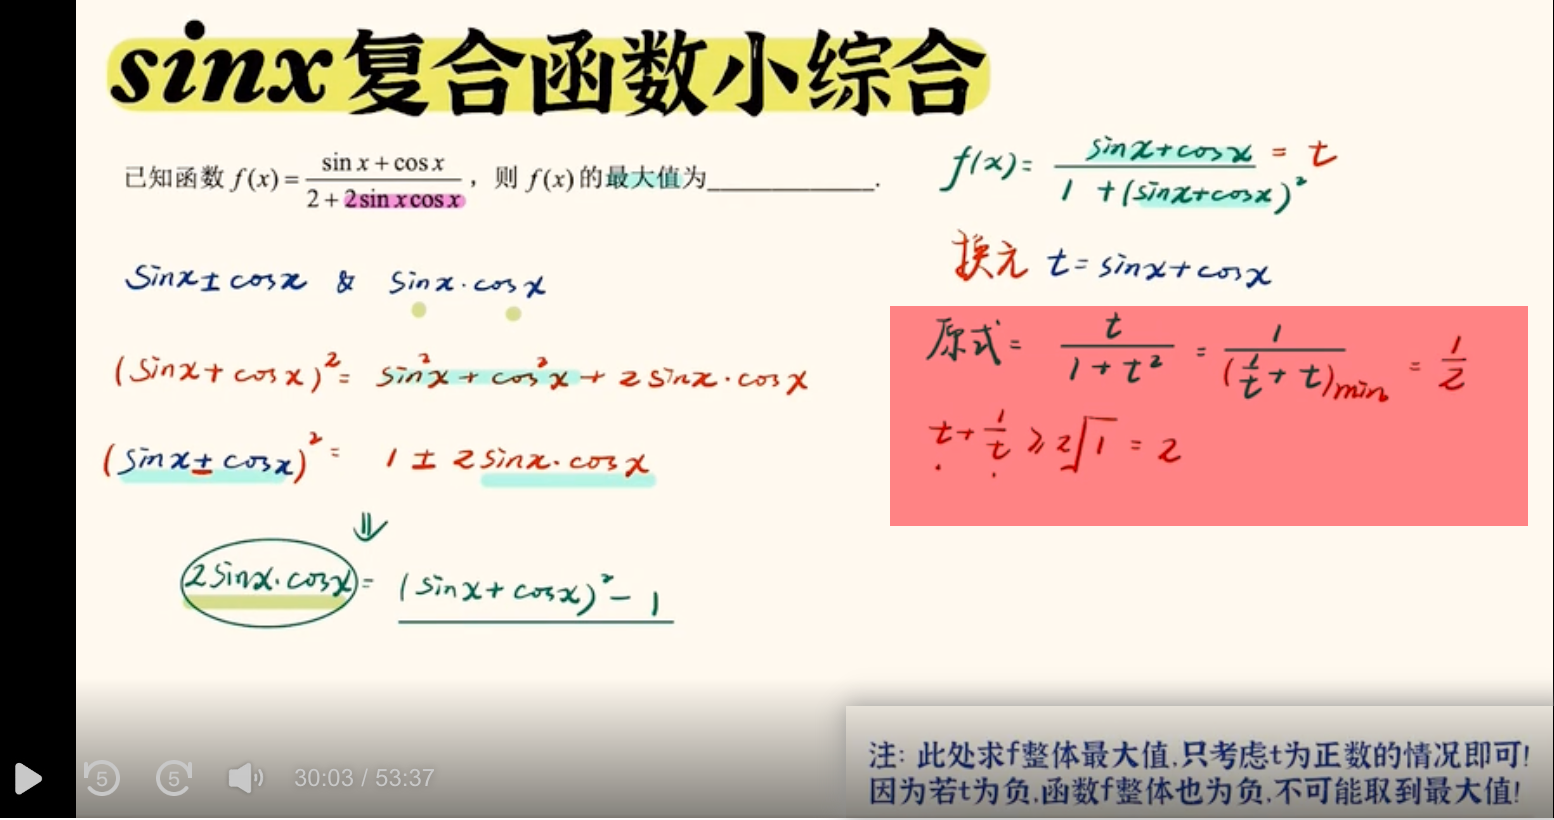 sinx复合函数小综合
已知函数 f(x) = (sin x + cos x)/(2 + 2sin x cos x)，则 f(x) 的最大值为____________.
sinx ± cosx & sinx·cosx
(sinx + cosx)² = sin²x + cos²x + 2sinx·cosx
(sinx ± cosx)² = 1 ± 2sinx·cosx
⇓
2sinx·cosx = (sinx + cosx)² − 1
f(x) = (sinx + cosx)/(1 + (sinx + cosx)²) = t
换元 t = sinx + cosx
原式 = t/(1 + t²) = 1/(1/t + t)min = 1/2
t + 1/t ≥ 2√1 = 2
注: 此处求f整体最大值,只考虑t为正数的情况即可!
因为若t为负,函数f整体也为负,不可能取到最大值!
5 5 30:03 / 53:37